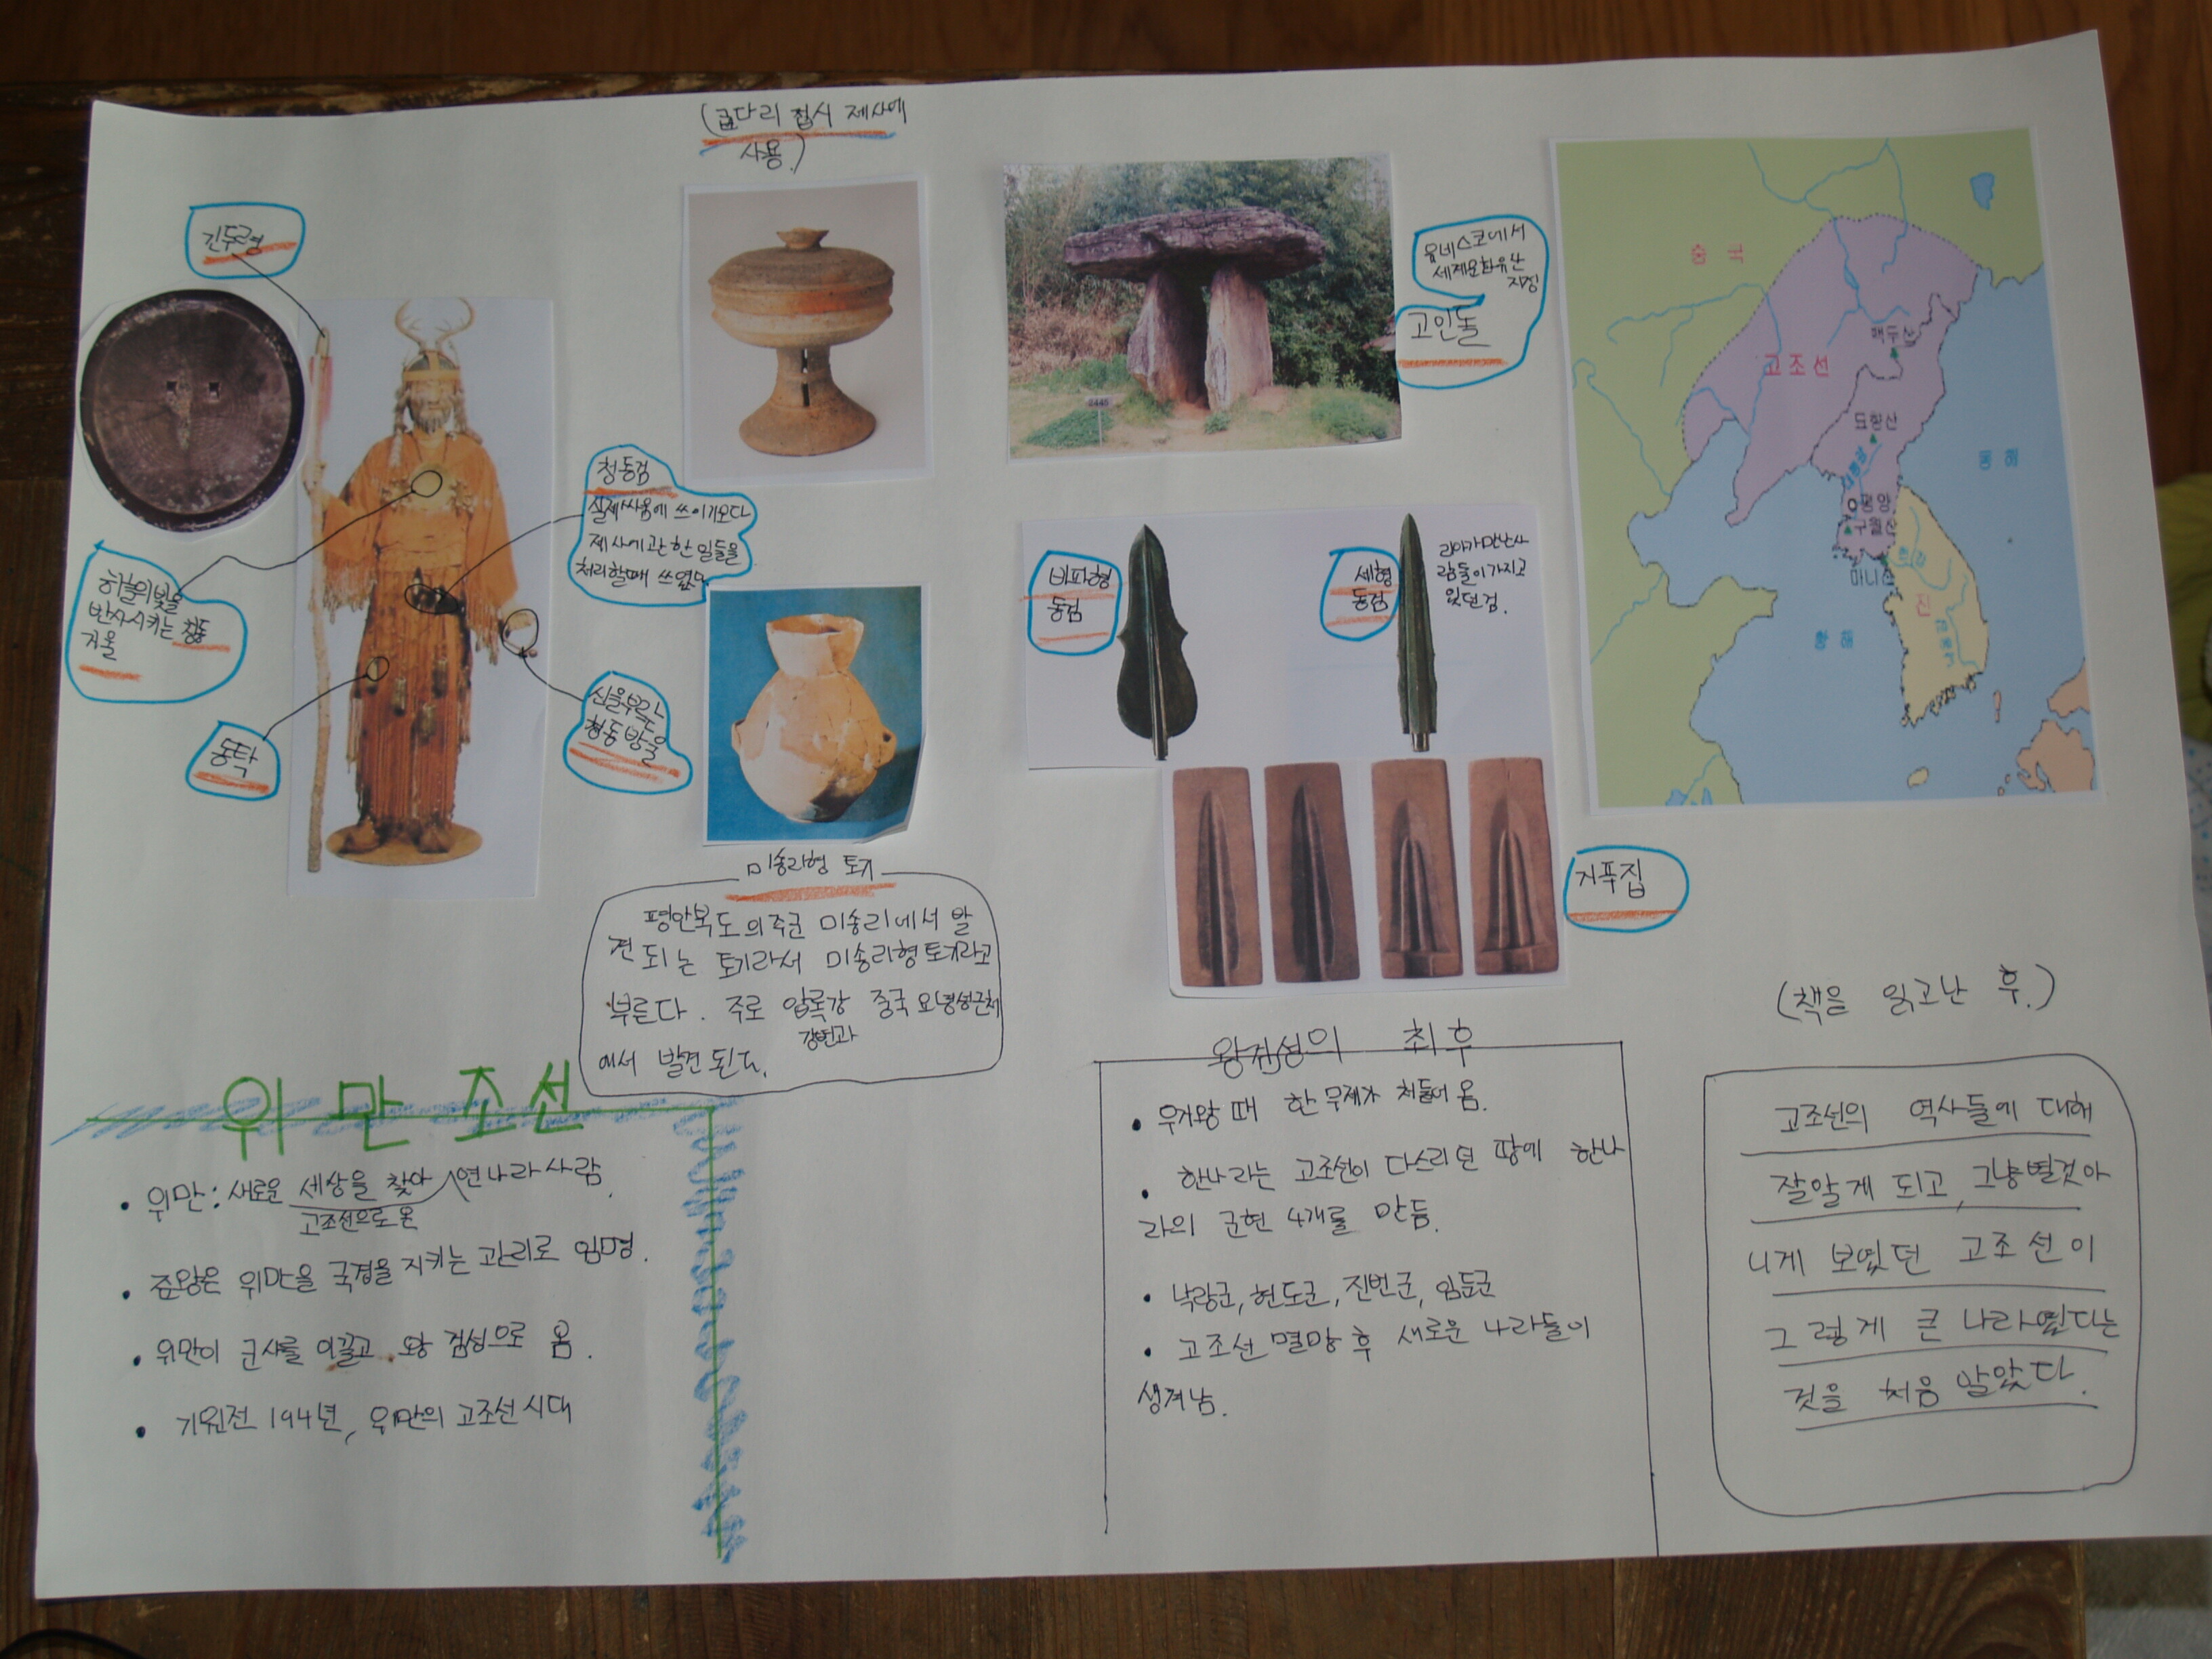 (굽다리 접시 제사에
사용.)
간두령
하늘의 빛을
반사시키는 청동
거울
동탁
청동검
실제싸움에 쓰이기보다
제사에관한 일들을
처리할때 쓰였다
신을부르는
청동 방울
미송리형 토기
평안북도의주군 미송리에서 발
견되는 토기라서 미송리형토기라고
부른다. 주로 압록강 중국 요녕성근처
강변과
에서 발견된다.
유네스코에서
세계문화유산
지정
고인돌
2445
비파형
동검
세형
동검
리아가만난사
람들이가지고
있던검.
거푸집
중국
고조선
백두산
묘향산
대동강
평양
구월산
마니산
한강
진
금강
동해
황해
위만조선
• 위만: 새로운 세상을 찾아 연나라사람.
고조선으로온
• 준왕은 위만을 국경을 지키는 관리로 임명.
• 위만이 군사를 이끌고 왕검성으로 옴.
• 기원전 194년, 위만의 고조선시대
왕검성의 최후
• 우거왕 때 한무제가 쳐들어 옴.
• 한나라는 고조선이 다스리던 땅에 한나
라의 군현 4개를 만듬.
• 낙랑군, 현도군, 진번군, 임둔군
• 고조선 멸망 후 새로운 나라들이
생겨남.
(책을 읽고난 후.)
고조선의 역사들에 대해
잘알게 되고, 그냥별것아
니게 보였던 고조선이
그렇게 큰 나라였다는
것을 처음 알았다.